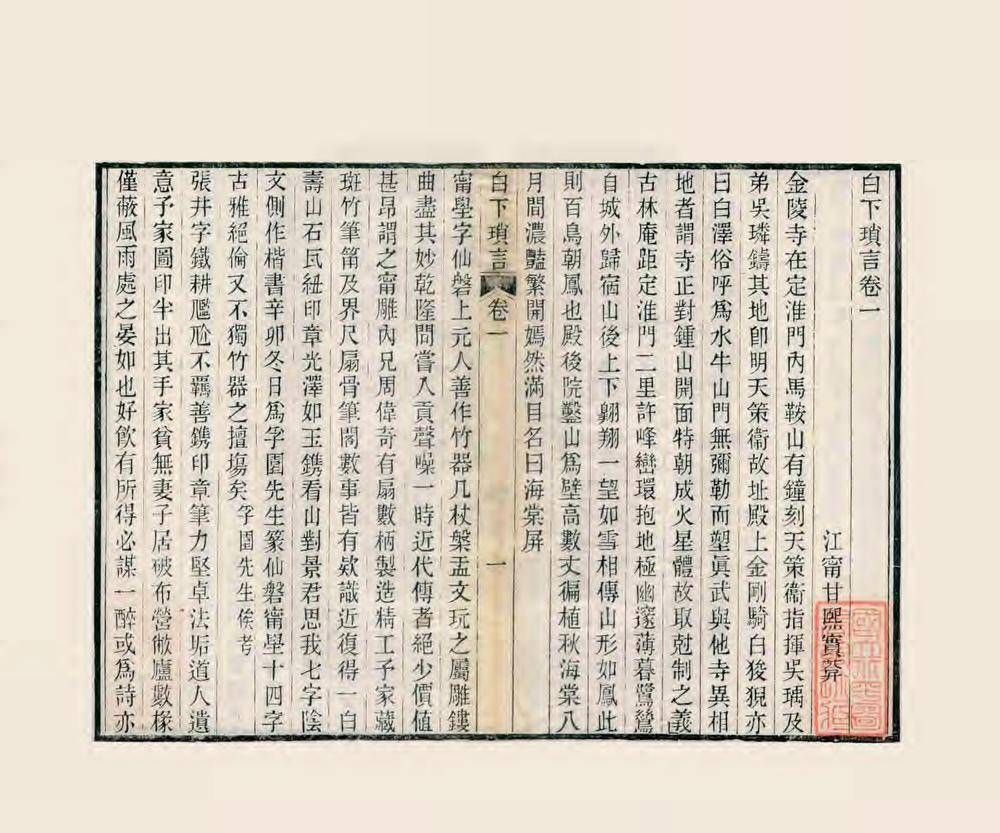 白下瑣言卷一
江甯甘熙實菴
金陵寺在定淮門內馬鞍山有鐘刻天策衞指揮吳瑀及
弟吳璘鑄其地卽明天策衞故址殿上金剛騎白狻猊亦
曰白澤俗呼爲水牛山門無彌勒而塑眞武與他寺異相
地者謂寺正對鍾山開面特朝成火星體故取尅制之義
古林庵距定淮門二里許峰巒環抱地極幽邃薄暮鷺鷥
自城外歸宿山後上下翱翔一望如雪相傳山形如鳳此
則百鳥朝鳳也殿後院鑿山爲壁高數丈徧植秋海棠八
月間濃豔繁開嫣然滿目名曰海棠屏
白下瑣言 卷一 一
甯壆字仙磐上元人善作竹器几杖槃盂文玩之屬雕鏤
曲盡其妙乾隆間嘗入貢聲噪一時近代傳者絕少價值
甚昂謂之甯雕內兄周偉奇有扇數柄製造精工予家藏
斑竹筆筩及界尺扇骨筆閣數事皆有欵識近復得一白
壽山石瓦紐印章光澤如玉鐫看山對景君思我七字陰
文側作楷書辛卯冬日爲孚園先生篆仙磐甯壆十四字
古雅絕倫又不獨竹器之擅塲矣 孚園先生俟考
張井字鐵耕尶尬不羈善鐫印章筆力堅卓法垢道人遺
意予家圖印半出其手家貧無妻子居破布營敝廬數椽
僅蔽風雨處之晏如也好飮有所得必謀一醉或爲詩亦